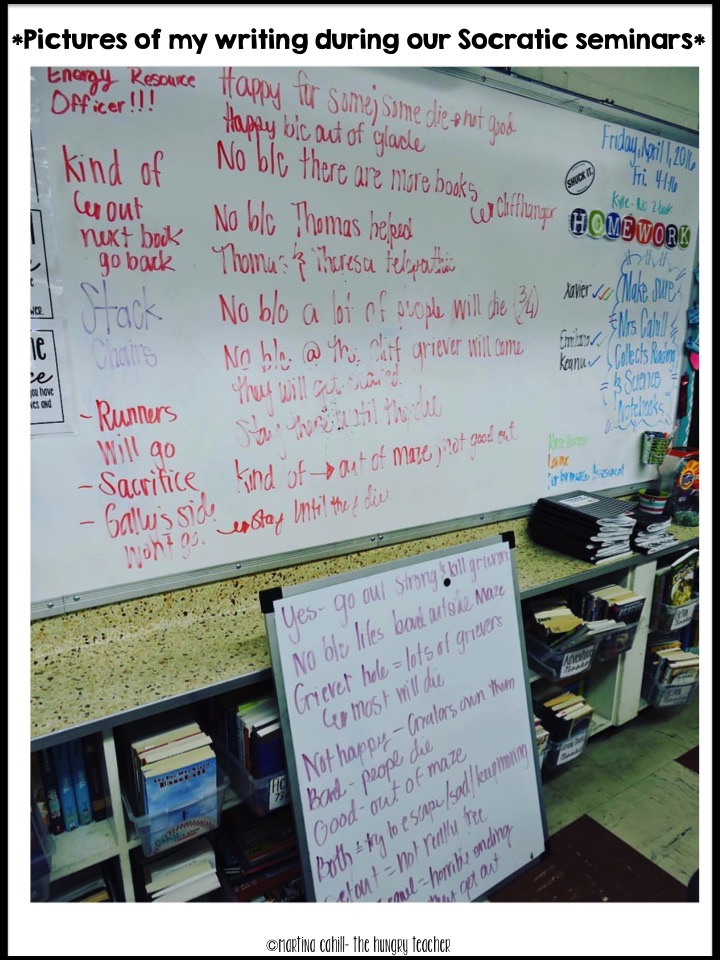 *Pictures of my writing during our Socratic seminars*
Energy Resource
Officer!!!
Happy for some; some die → not good
Happy b/c out of glade
Kind of
No b/c there are more books
↳ Cliffhanger
↳ out
next book
go back
No b/c Thomas helped
Thomas & Theresa telepathic
Stack
Chairs
No b/c a lot of people will die (3/4)
No b/c @ the cliff griever will come
they will get scared.
Stay there until they die
- Runners
Will go
- Sacrifice
- Gally's side
won't go.
Kind of → out of maze, not good out
↳ Stay until they die
Friday, April 1, 2016
Fri. 4-1-16
SHUCK IT.
HOMEWORK
Xavier
Emiliano
Keanu
Make Sure
Mrs. Cahill
Collects Reading
& Science
Notebooks
Yes- go out strong & kill grievers
No b/c lifes based outside Maze
Griever hole = lots of grievers
↳ most will die
Not happy - Creators own them
Bad - people die
Good - out of maze
Both = try to escape/sad/keep moving
Get out = not really free
= horrible ending
they get out
©Martina Cahill- the hungry teacher